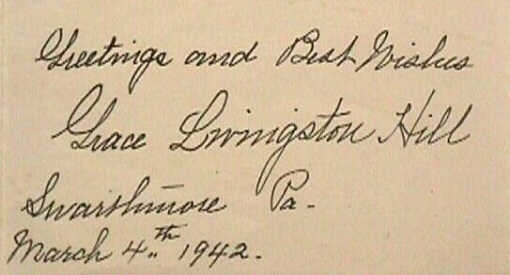 Greetings and Best Wishes
Grace Livingston Hill
Swarthmore Pa-
March 4th 1942.